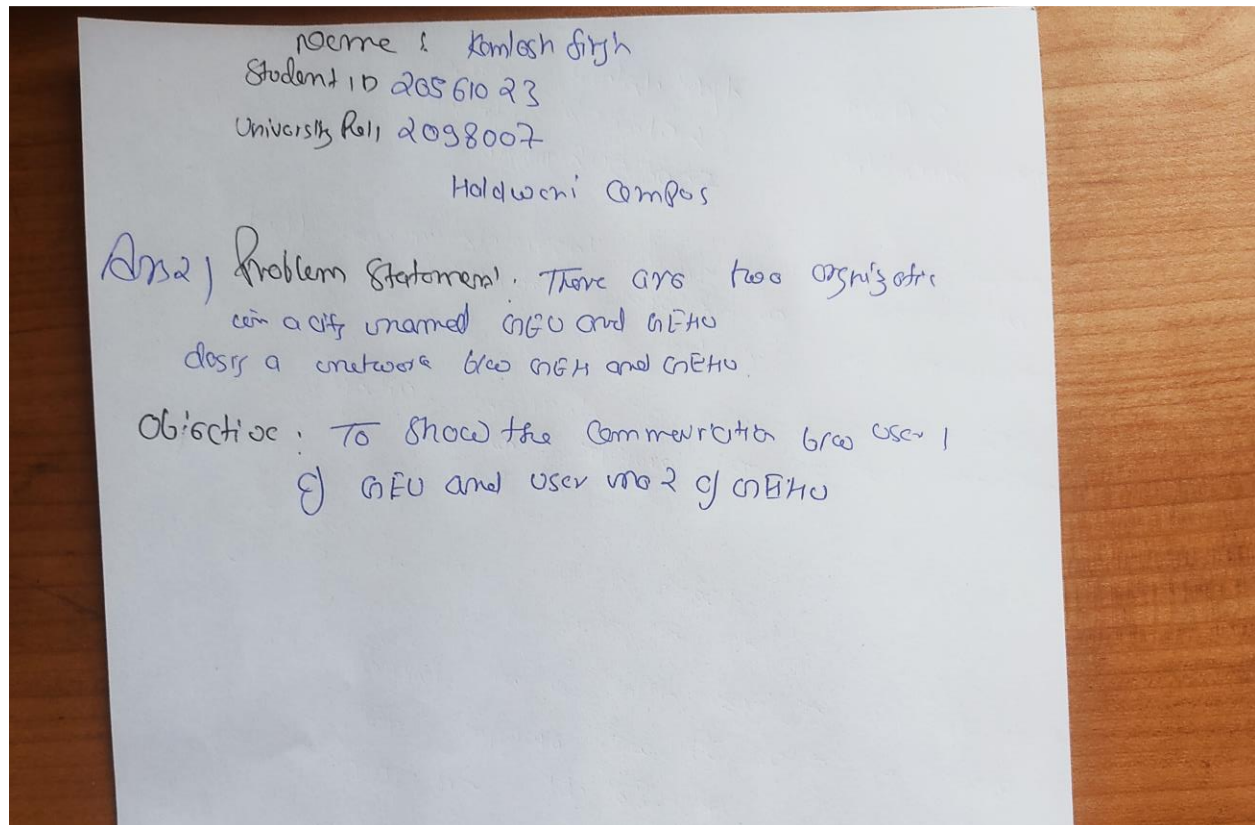 Name : Kamlesh Singh
Student ID 20561023
University Roll 2098007
Haldwani Campus
Ans2) Problem Statement. There are two orgnizatio
in a city named GEU and GEHU
desig a network b/w GEH and GEHU.
Objective : To show the Communication b/w user 1
of GEU and user no 2 of GEHU